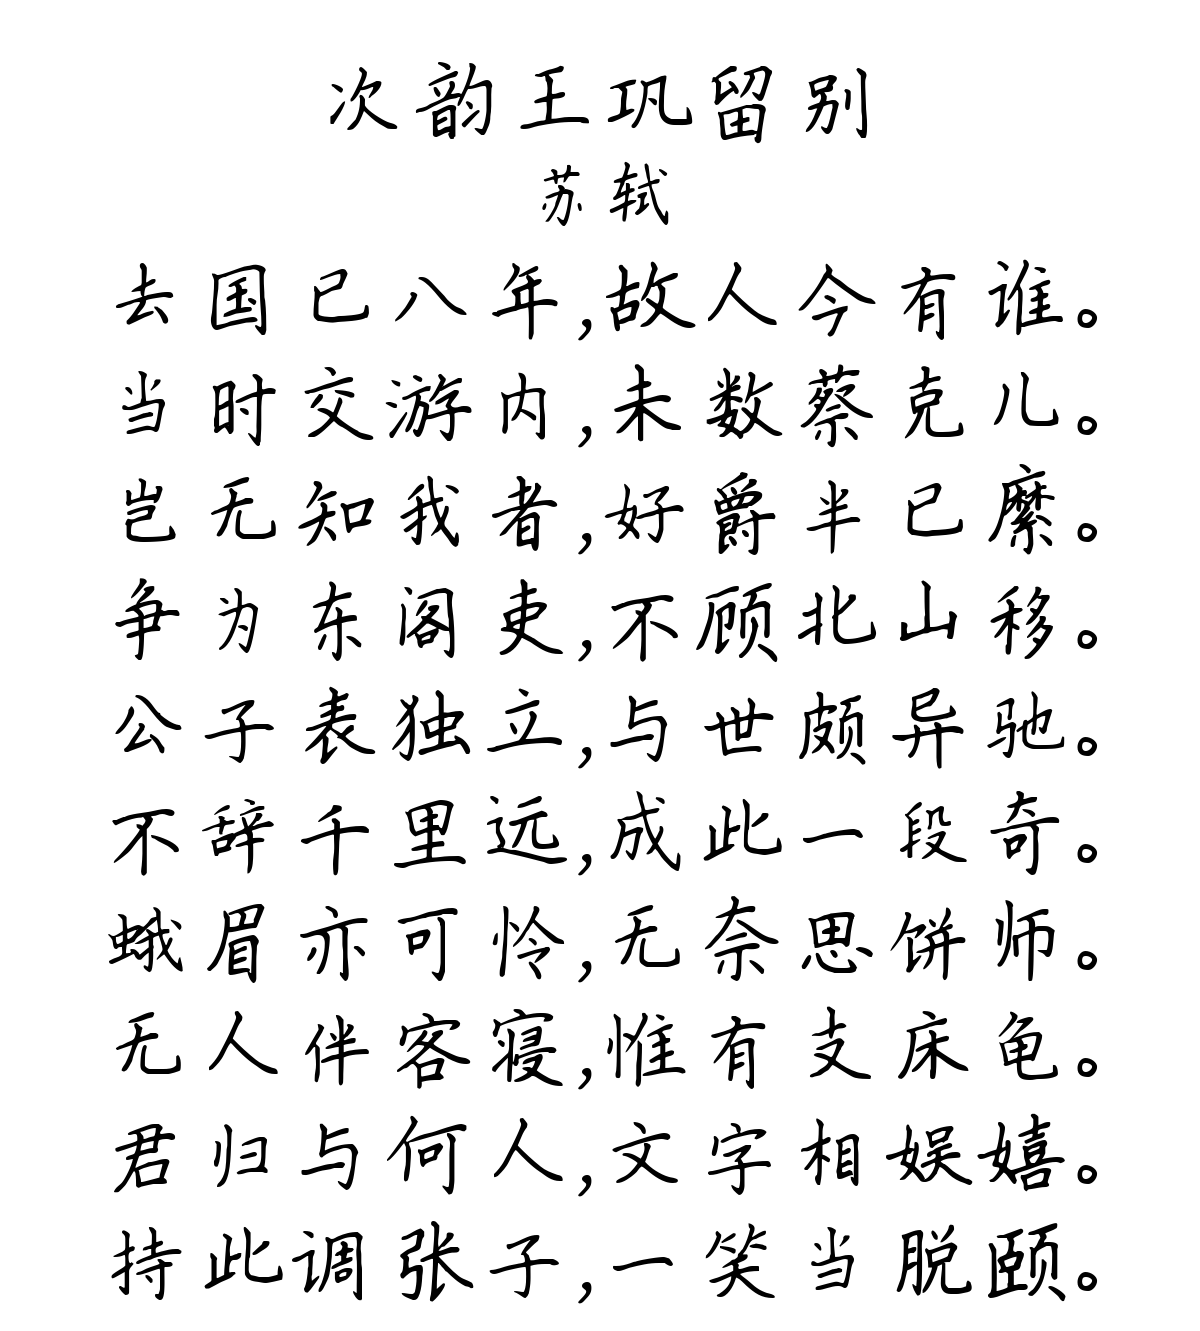 次韵王巩留别
苏轼
去国已八年,故人今有谁。
当时交游内,未数蔡克儿。
岂无知我者,好爵半已縻。
争为东阁吏,不顾北山移。
公子表独立,与世颇异驰。
不辞千里远,成此一段奇。
蛾眉亦可怜,无奈思饼师。
无人伴客寝,惟有支床龟。
君归与何人,文字相娱嬉。
持此调张子,一笑当脱颐。